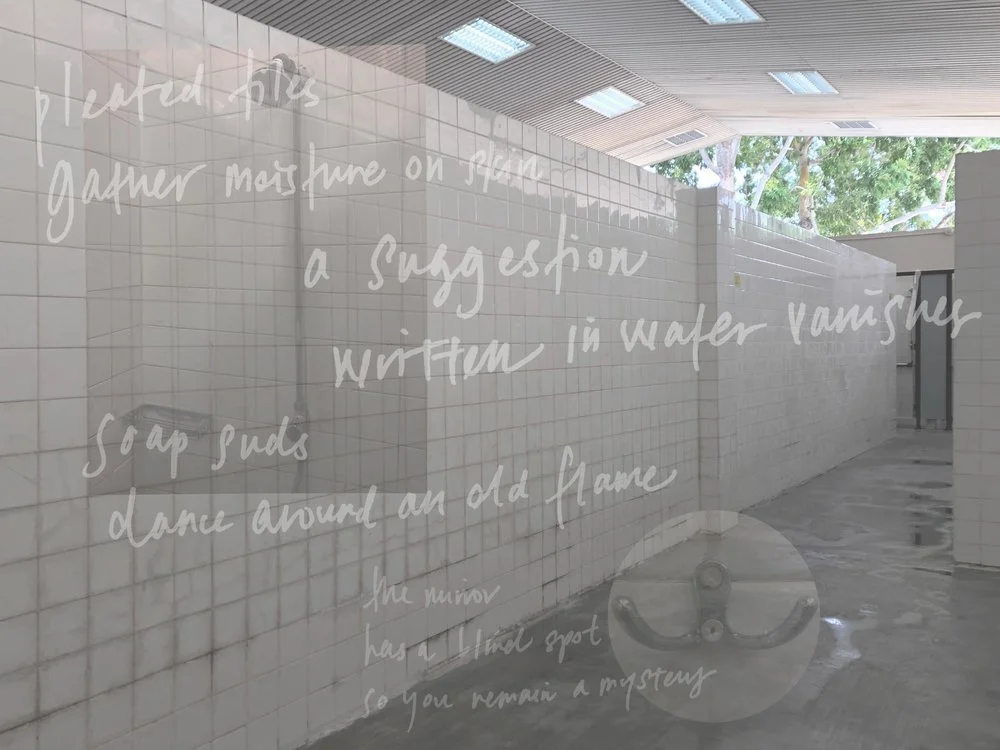 pleated tiles
gather moisture on skin
a suggestion
written in water vanishes
soap suds
dance around an old flame
the mirror
has a blind spot
so you remain a mystery